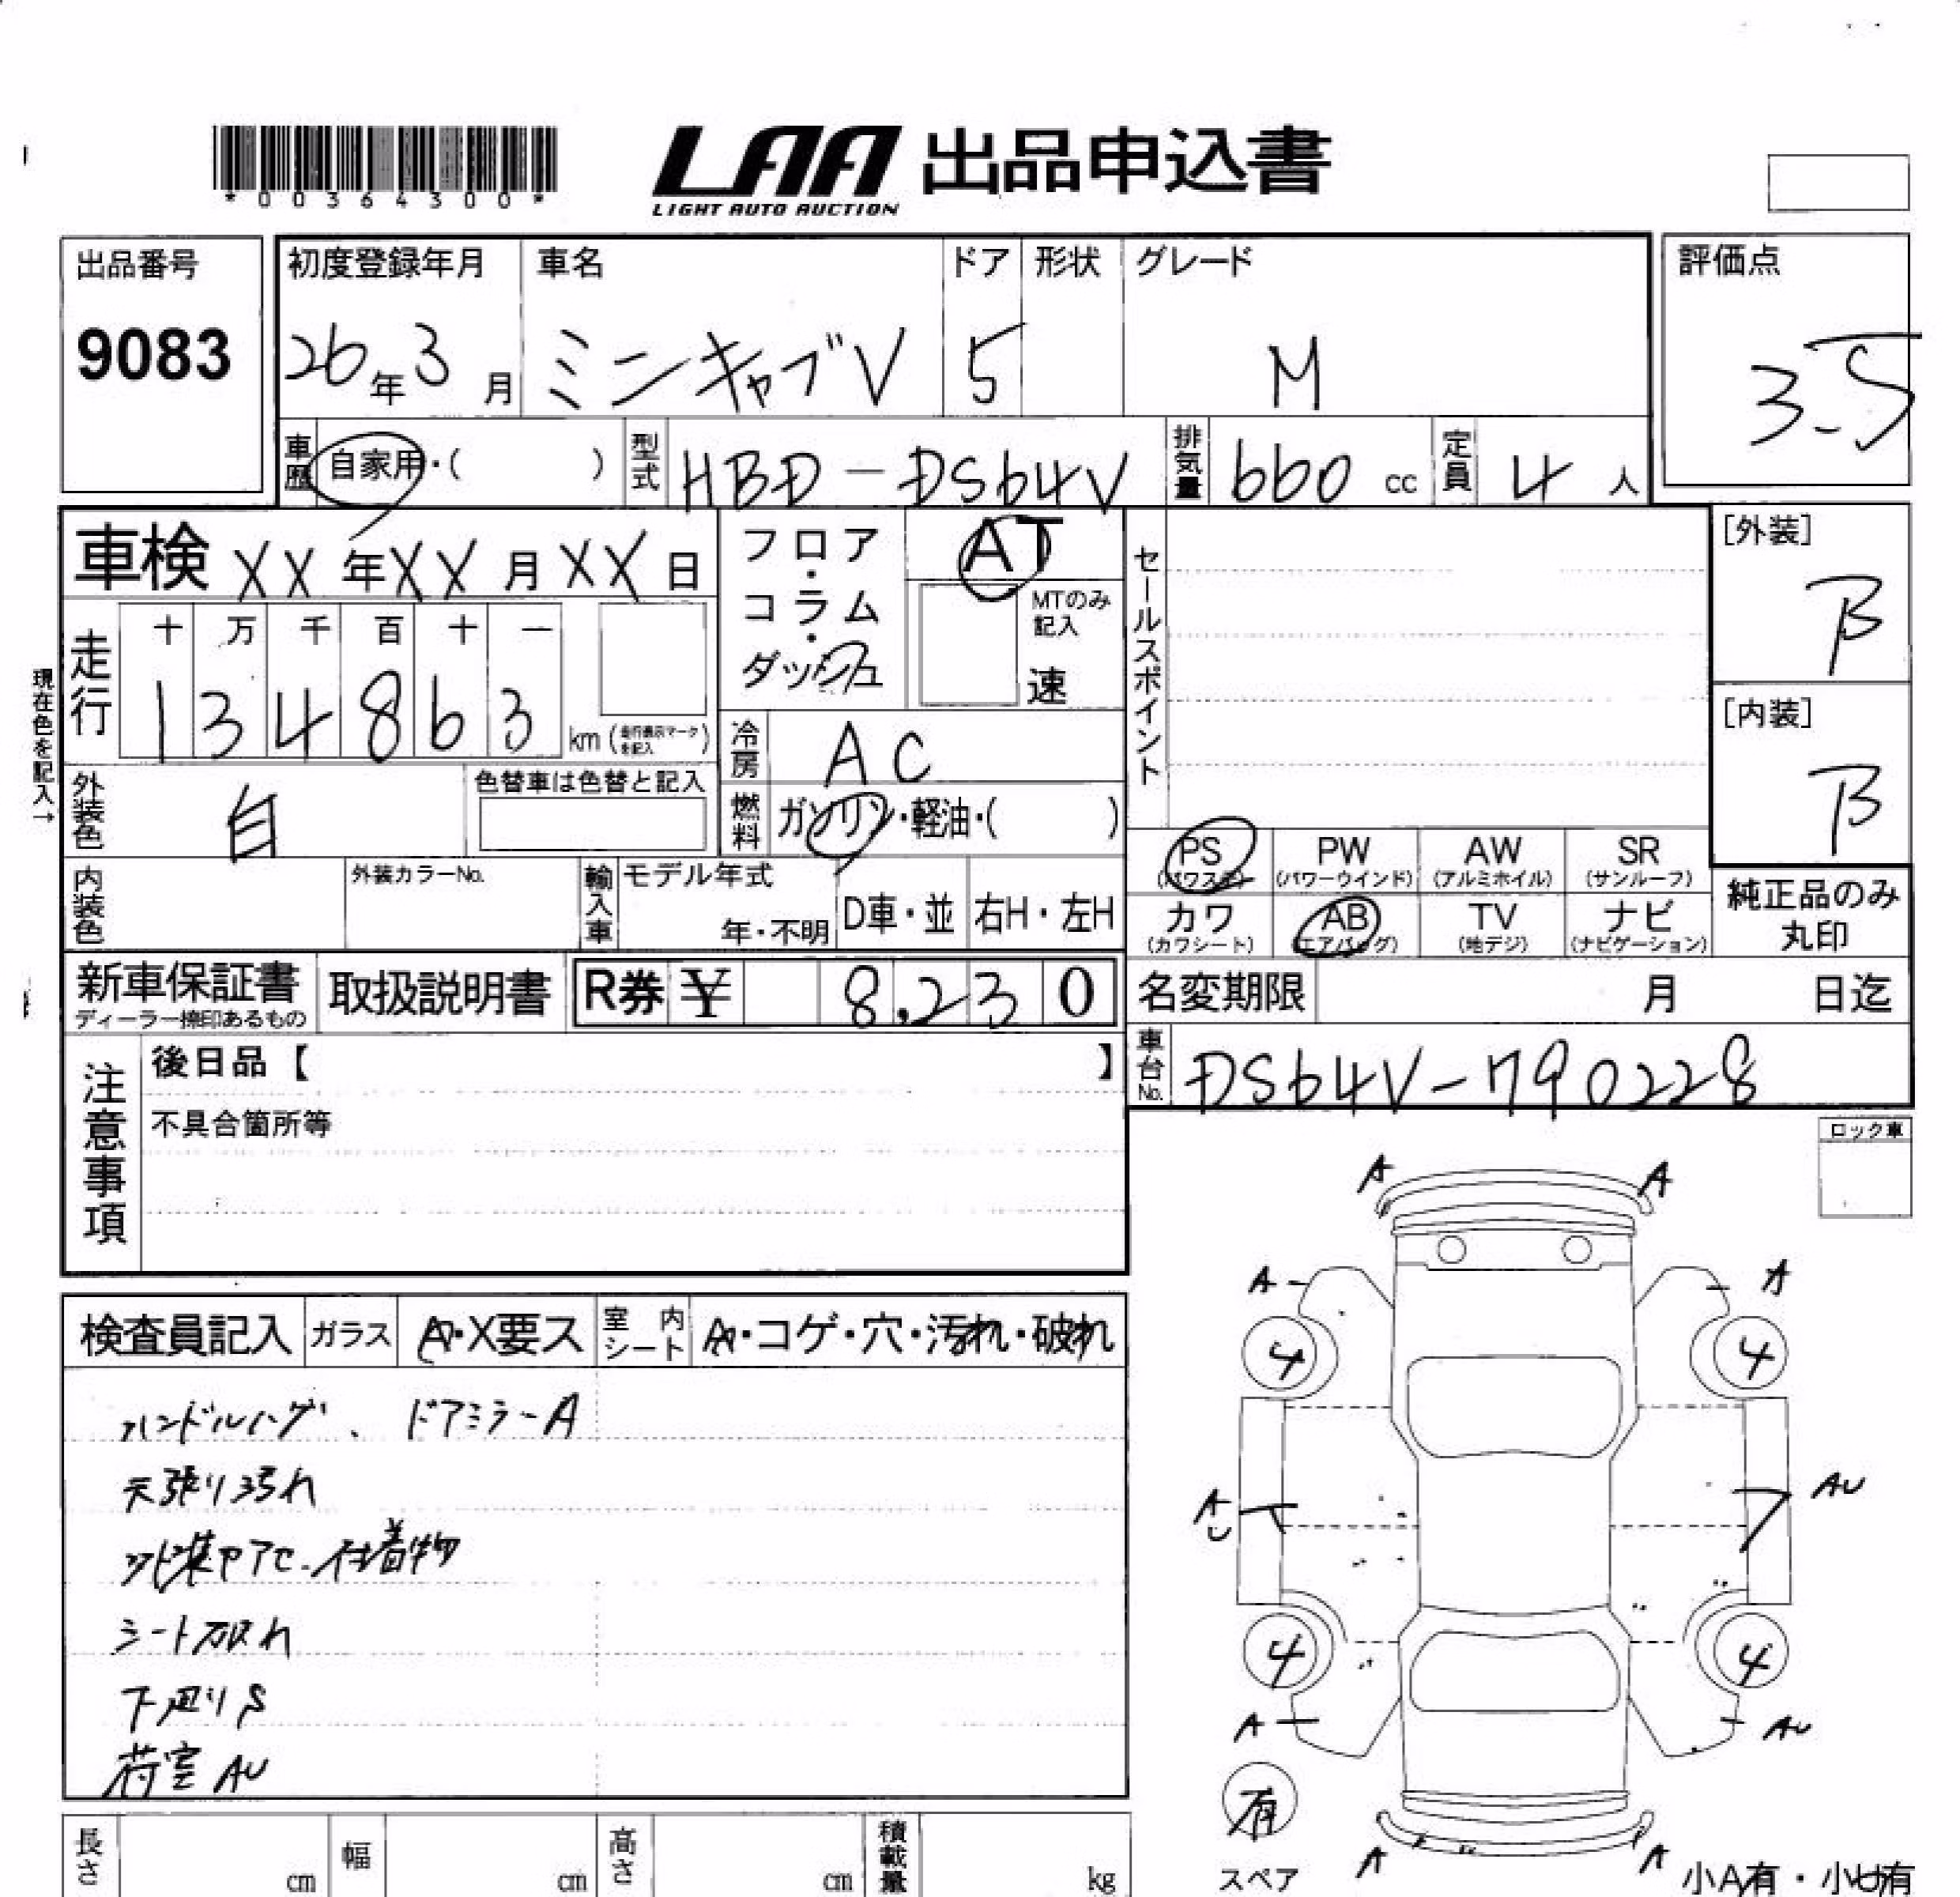 *00364300*
LAA 出品申込書
LIGHT AUTO AUCTION
出品番号
9083
初度登録年月
26年3月
車名
ミニキャブV
ドア
5
形状
グレード
M
評価点
3.5
車歴 自家用・( )
型式 HBD-DS64V
排気量 660 cc
定員 4 人
車検 XX年XX月XX日
フロア・コラム・ダッシュ
AT
MTのみ記入
速
セールスポイント
[外装]
B
[内装]
B
現在色を記入→
走行
十 万 千 百 十 一
1 3 4 8 6 3 km (走行表示マークを記入)
冷房 AC
燃料 ガソリン・軽油・( )
外装色 白
色替車は色替と記入
内装色
外装カラーNo.
輸入車
モデル年式
年・不明
D車・並
右H・左H
PS (パワステ)
PW (パワーウインド)
AW (アルミホイル)
SR (サンルーフ)
カワ (カワシート)
AB (エアバッグ)
TV (地デジ)
ナビ (ナビゲーション)
純正品のみ丸印
新車保証書
ディーラー捺印あるもの
取扱説明書
R券 ¥ 8,230
名変期限 月 日迄
車台No. DS64V-790228
注意事項
後日品【 】
不具合箇所等
ロック車
検査員記入
ガラス A・X要ス
室内シート A・コゲ・穴・汚れ・破れ
ハンドルハゲ、ドアミラーA
天張り汚れ
外装ヤアセ、付着物
シート破れ
下廻りS
荷室AU
A A
A A
4 4
AU AU
4 4
A AU
有
スペア
A A
小A有・小U有
長さ cm
幅 cm
高さ cm
積載量 kg